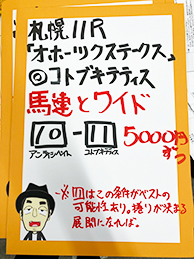 札幌11R
「オホーツクステークス」
◎コトブキテティス
馬連とワイド
10-11 5000円ずつ
アンティシペイト コトブキテティス
※11はこの条件がベストの
可能性あり。捲りが決まる
展開になれば。